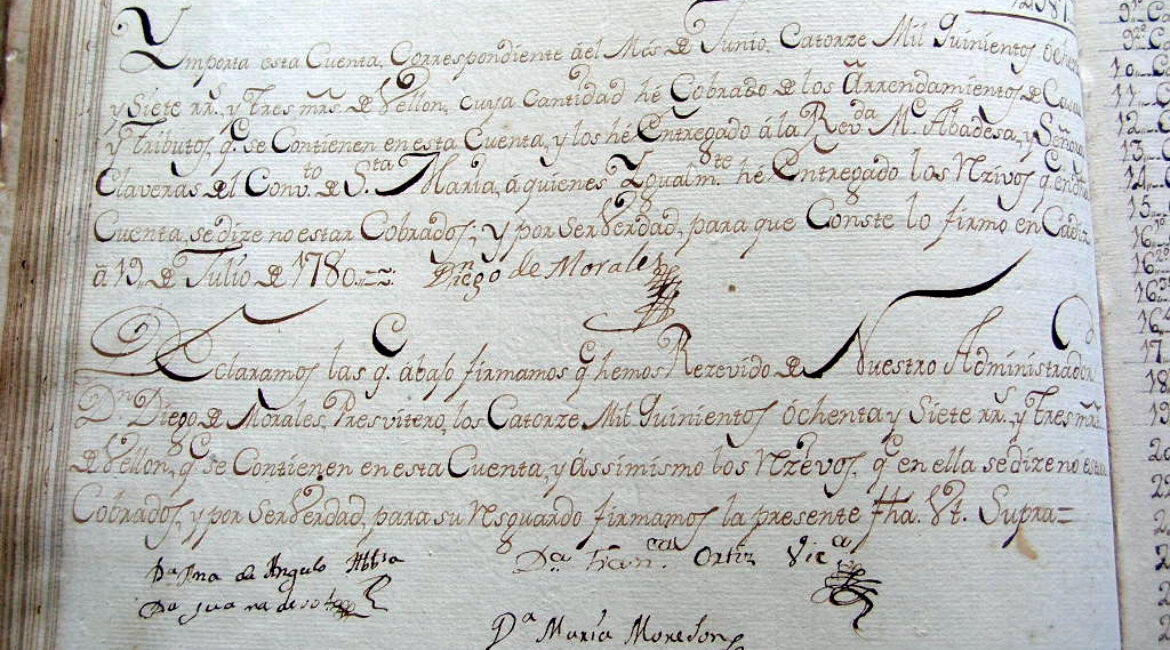 Y
Importa esta Cuenta, Correspondiente âel Mes de Junio, Catorze Mil Quinientos óchenta
y Siete rr.s y tres mrs. de Vellon, cuya cantidad hé Cobrado de los Arrendamientos de Casas
y Tributos, q.e se Contienen en esta Cuenta, y los hé Entregado á la Rev.da M.e Abadesa, y Señoras
Claveras del Conv.to de S.ta María, á quienes Igualm.te hé Entregado los Rzivos q.e en dha
Cuenta, se dize no estar Cobrados; y por ser Verdad, para que Conste lo firmo en Cadiz
â 19,, de Julio de 1780.
D.n Diego de Morales
Declaramos las q.e abajo firmamos q.e hemos Rezevido de Nuestro Administrador
D.n Diego de Morales, Presvitero, los Catorze Mil Quinientos óchenta y Siete rr.s y tres mrs.
de Vellon, q.e se Contienen en esta Cuenta, y Assimismo los Rzevos, q.e en ella se dize no estar
Cobrados, y por ser Verdad, para su resguardo firmamos la presente fha. Vt. Supra=
D.a Ana de Angulo Abb.sa
D.a Fran.ca Ortiz Vic.a
D.a Juana de soto
D.a María Moreson
9
10
11
12
13
14
15
16
16
16
16
17
18